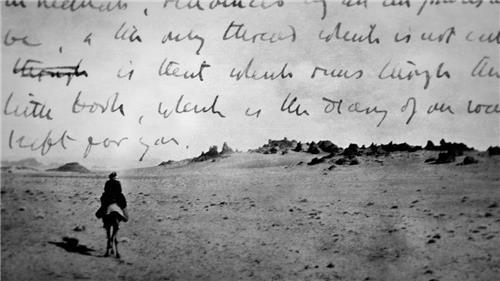 by all
be, & the only thread which is not cut
though is that which runs through
little book, which is the diary of my
kept for you.